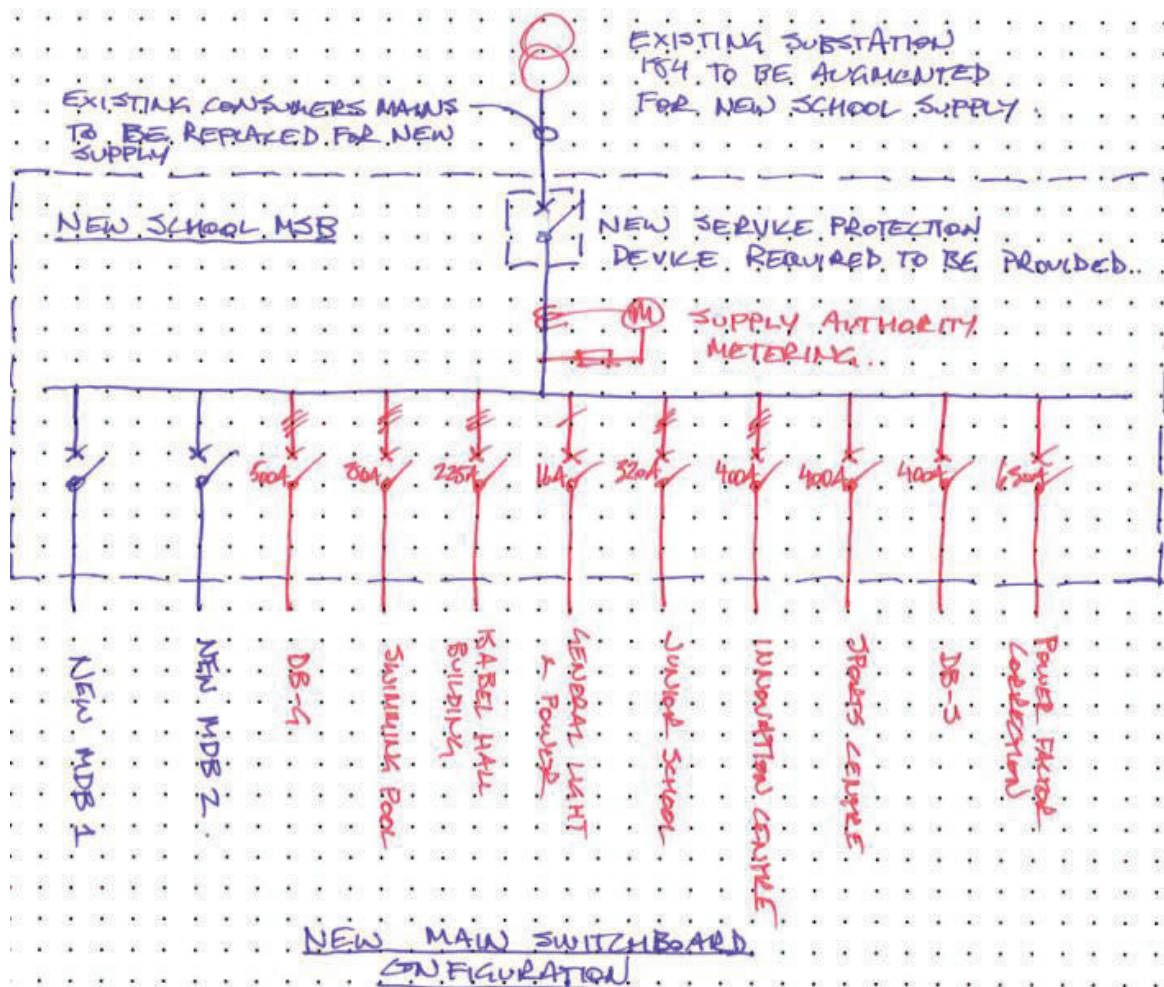 EXISTING SUBSTATION
184 TO BE AUGMENTED
FOR NEW SCHOOL SUPPLY.
EXISTING CONSUMERS MAINS
TO BE REPLACED FOR NEW
SUPPLY
NEW SCHOOL MSB
NEW SERVICE PROTECTION
DEVICE REQUIRED TO BE PROVIDED.
M
SUPPLY AUTHORITY
METERING.
500A
225A
16A
320A
400A
400A
400A
NEW MDB 1
NEW MDB 2
SWIMMING POOL
ISABEL HALL
BUILDING
GENERAL LIGHT
& POWER
JUNIOR SCHOOL
INNOVATION CENTRE
SPORTS CENTRE
POWER FACTOR
CORRECTION
NEW MAIN SWITCHBOARD
CONFIGURATION